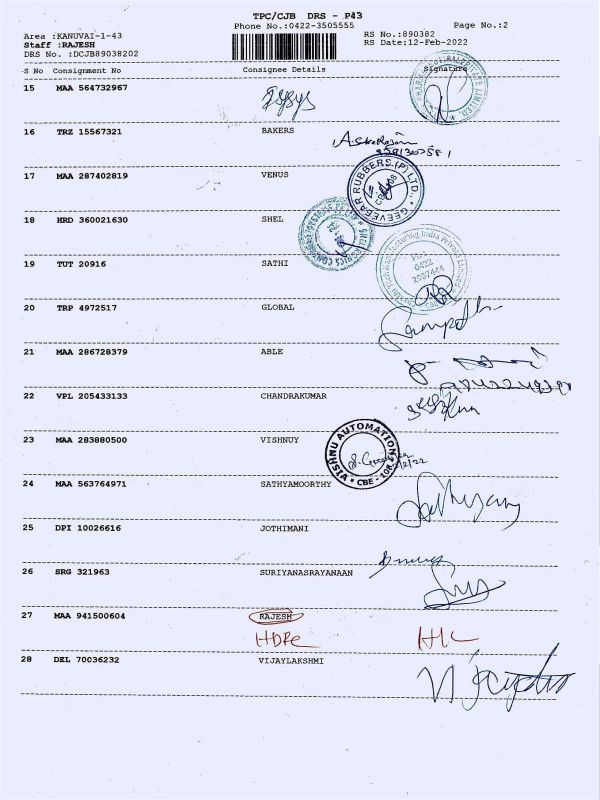 TPC/CJB DRS - P43
Phone No.:0422-3505555 Page No.:2
Area :KANUVAI-1-43 RS No.:890382
Staff :RAJESH RS Date:12-Feb-2022
DRS No. :DCJB89038202
S No Consignment No Consignee Details Signature
15 MAA 564732967
16 TRZ 15567321 BAKERS
17 MAA 287402819 VENUS
GEEVEGAR RUBBERS (P) LTD.,
18 HRD 360021630 SHEL
19 TUT 20916 SATHI
0422
20 TRP 4972517 GLOBAL
21 MAA 286728379 ABLE
22 VPL 205433133 CHANDRAKUMAR
23 MAA 283880500 VISHNUY
VISHNU AUTOMATION
* CBE -
24 MAA 563764971 SATHYAMOORTHY
25 DPI 10026616 JOTHIMANI
26 SRG 321963 SURIYANASRAYANAAN
27 MAA 941500604 RAJESH
28 DEL 70036232 VIJAYLAKSHMI